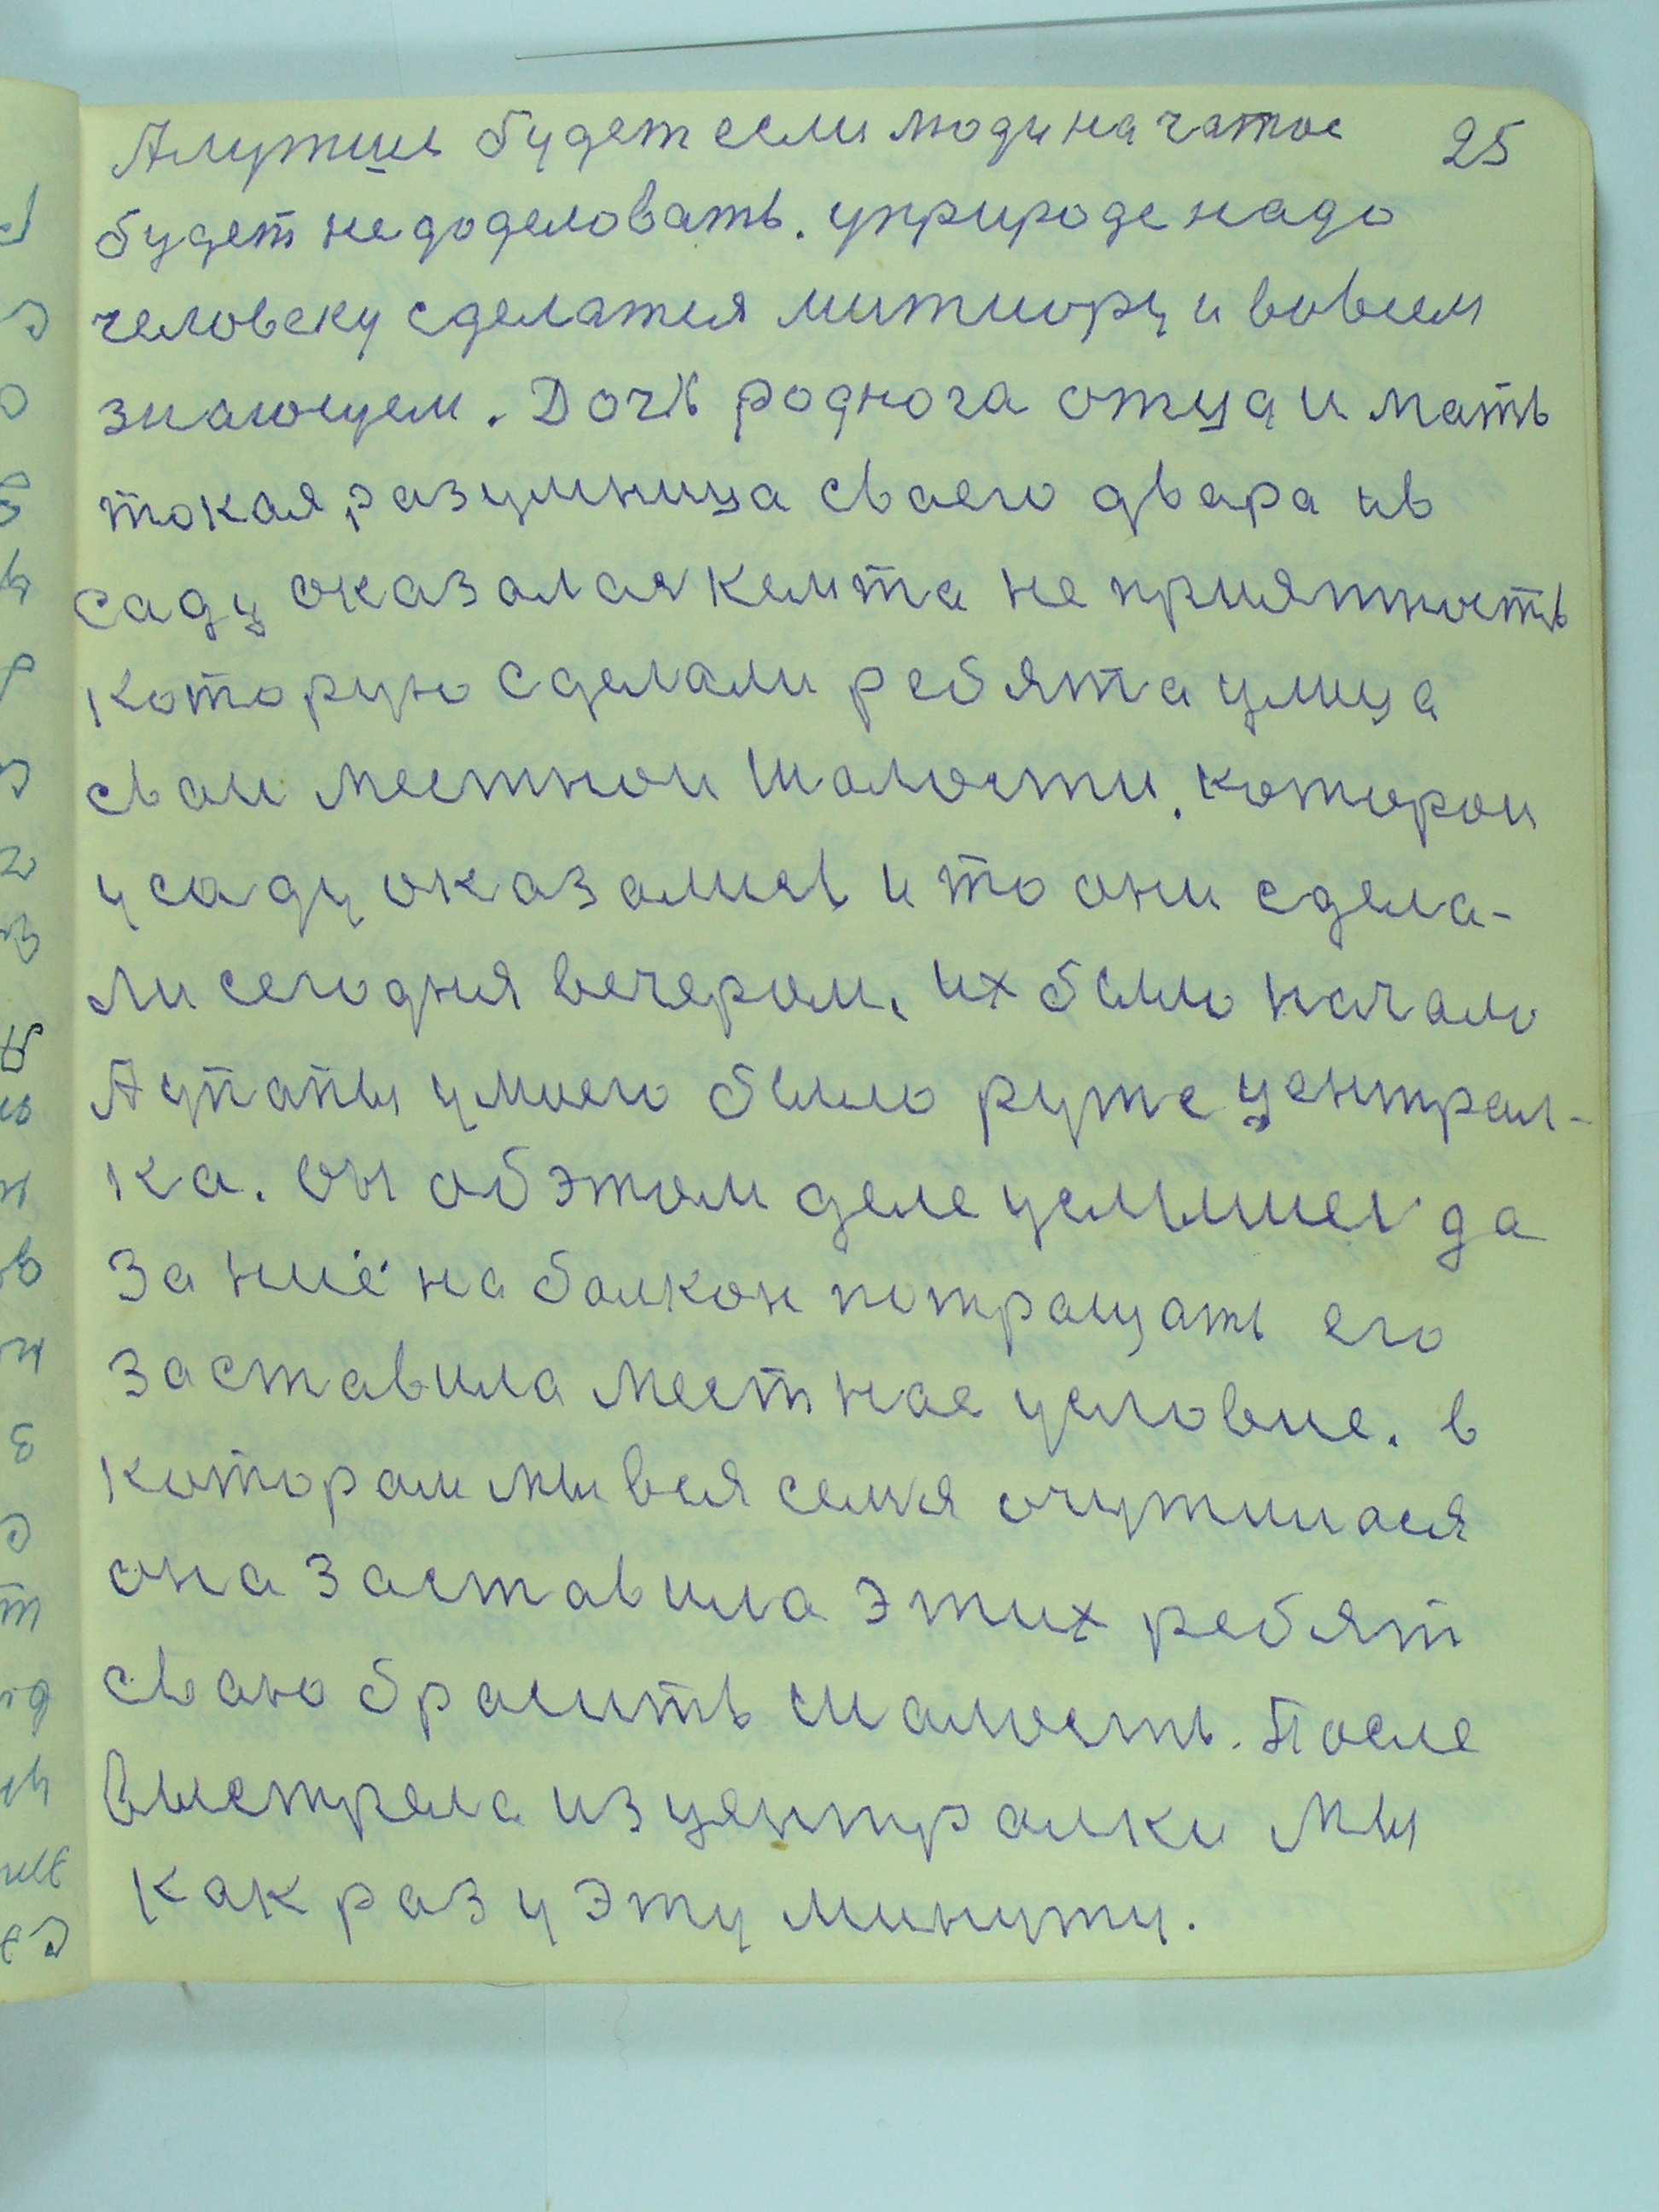 Алутше будет если люди начатое 25
будет недоделовать. уприроде надо
человеку сделатся митиору и вовсем
знающем. Дочь роднога отца и мать
токая разумница сваего двара ив
саду оказалая кемта не приятность
которую сделали ребята улица
сваи местнои шалости. которои
усаду оказались и то они сдела-
ли сегодня вечером. их было начало
Аупапы умоего было руже централ-
ка. он обэтом деле услышел да
за ниё на балкон потращать его
заставила местнае условие. в
котором мы вся семя очутилася
она заставила этих ребят
сваю бросить шалость. После
выстрела изцентралки мы
как раз у эту минуту.